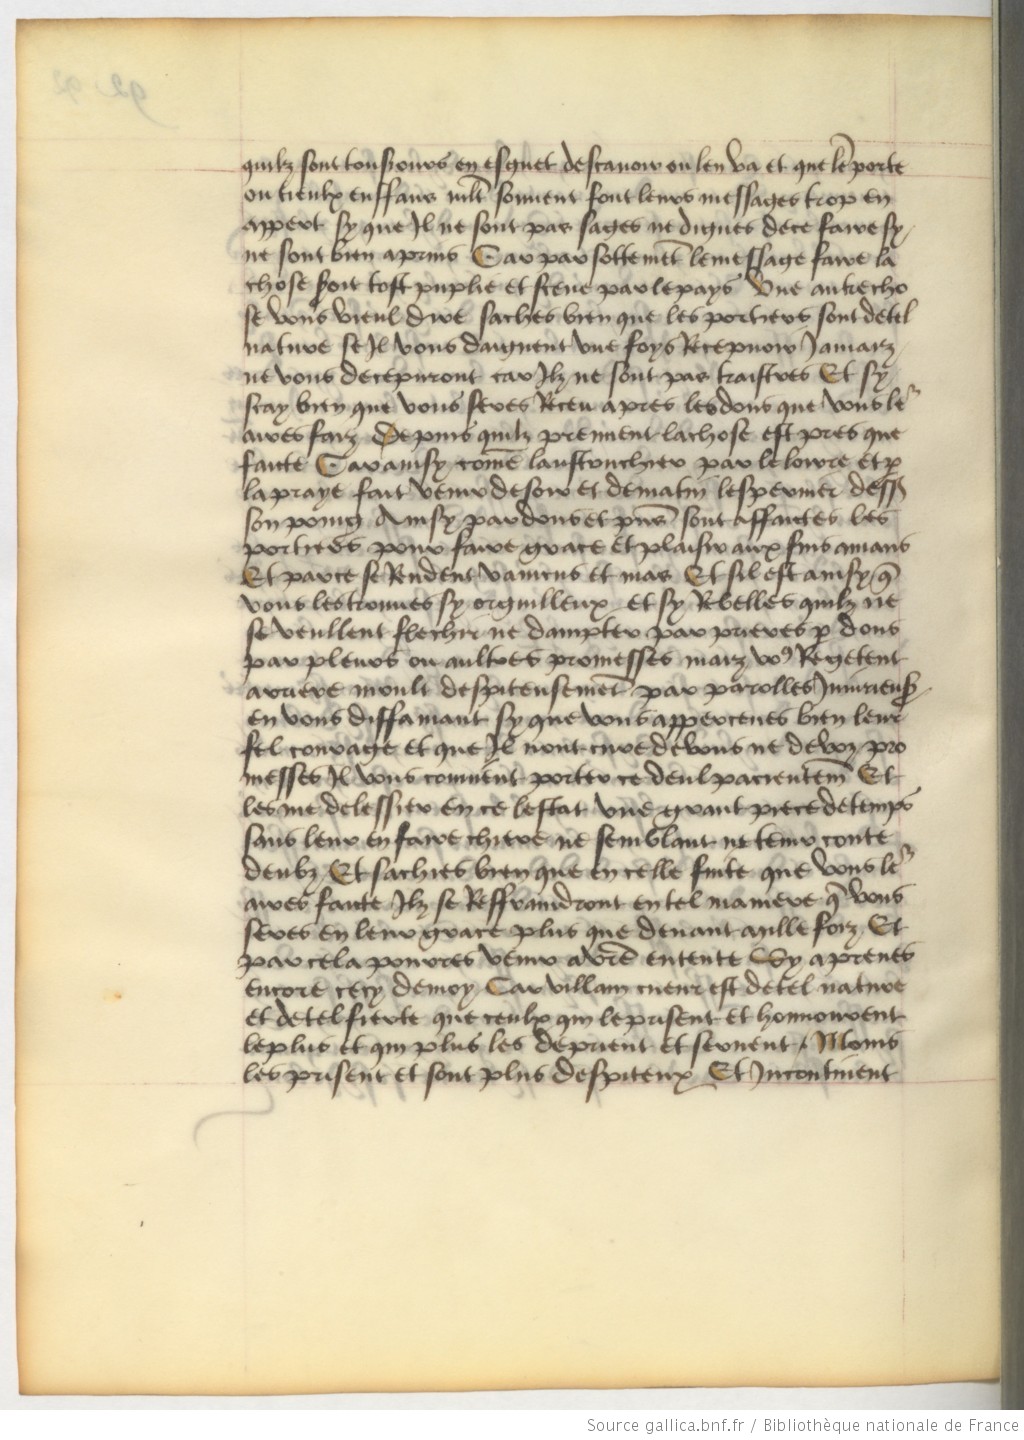 quilz sont tousiours en esguet descauoir ou len va et que lē porte
ou tieulx enffans mlt souuent font leurs messages trop en
appert sy que Il ne sont pas sages ne dignes de ce faire sy
ne sont bien aprins Car par sottemēt le message faire la
chose soit tost puplie et sceue par le pays Vne autre cho
se vous vieul dire saches bien que les portiers sont de tel
nature se Il vous daignent vne foys Recepuoir Jamaiz
ne vous decepuront car Ilz ne sont pas traistres Et sy
scay bien que vous seres Receu apres les dons que vous le
aures faiz Depuis quilz prennent la chose est pres que
faicte Car ainsy cōme laustruchier par le loirre et p
la praye fait venir de soir et de matin lespreuier dess
son poing Ainsy par dons et pns sont affaictes les
portiers pour faire grace et plaisir aux fins amans
Et parce se Rendent vaincus et mas Et sil est ainsy q̄
vous les trouues sy orguilleux et sy Rebelles quilz ne
se veullent flechir ne dampter par prieres p dons
par pleurs ou aultres promesses maiz vo9 Regetent
arriere moult despiteusemēt par parolles Iniurieus
en vous diffamant sy que vous apperceues bien leur
fel courage et que Il nont cure de vous ne de voz pro
messes Il vous conuient porter ce deul pacientem̄ Et
les me delessier en ce lestat vne grant piece de temps
sans leur en faire chiere ne semblant ne tenir conte
deulz Et sachies bien que en celle fuite que vous le
aires faicte Ilz se Reffraindront en tel maniere q̄ vous
seres en leur grace plus que deuant aille foiz Et
par cela pourres venir a vrē entente Sy aprenes
encore cecy de moy Car villain cueur est de tel nature
et de tel fierte que ceulx qui le prisent et honnourent
le plus et qui plus les deprient et seruent / Moins
les prisent et sont plus despiteux Et Incontinent
Source gallica.bnf.fr / Bibliothèque nationale de France